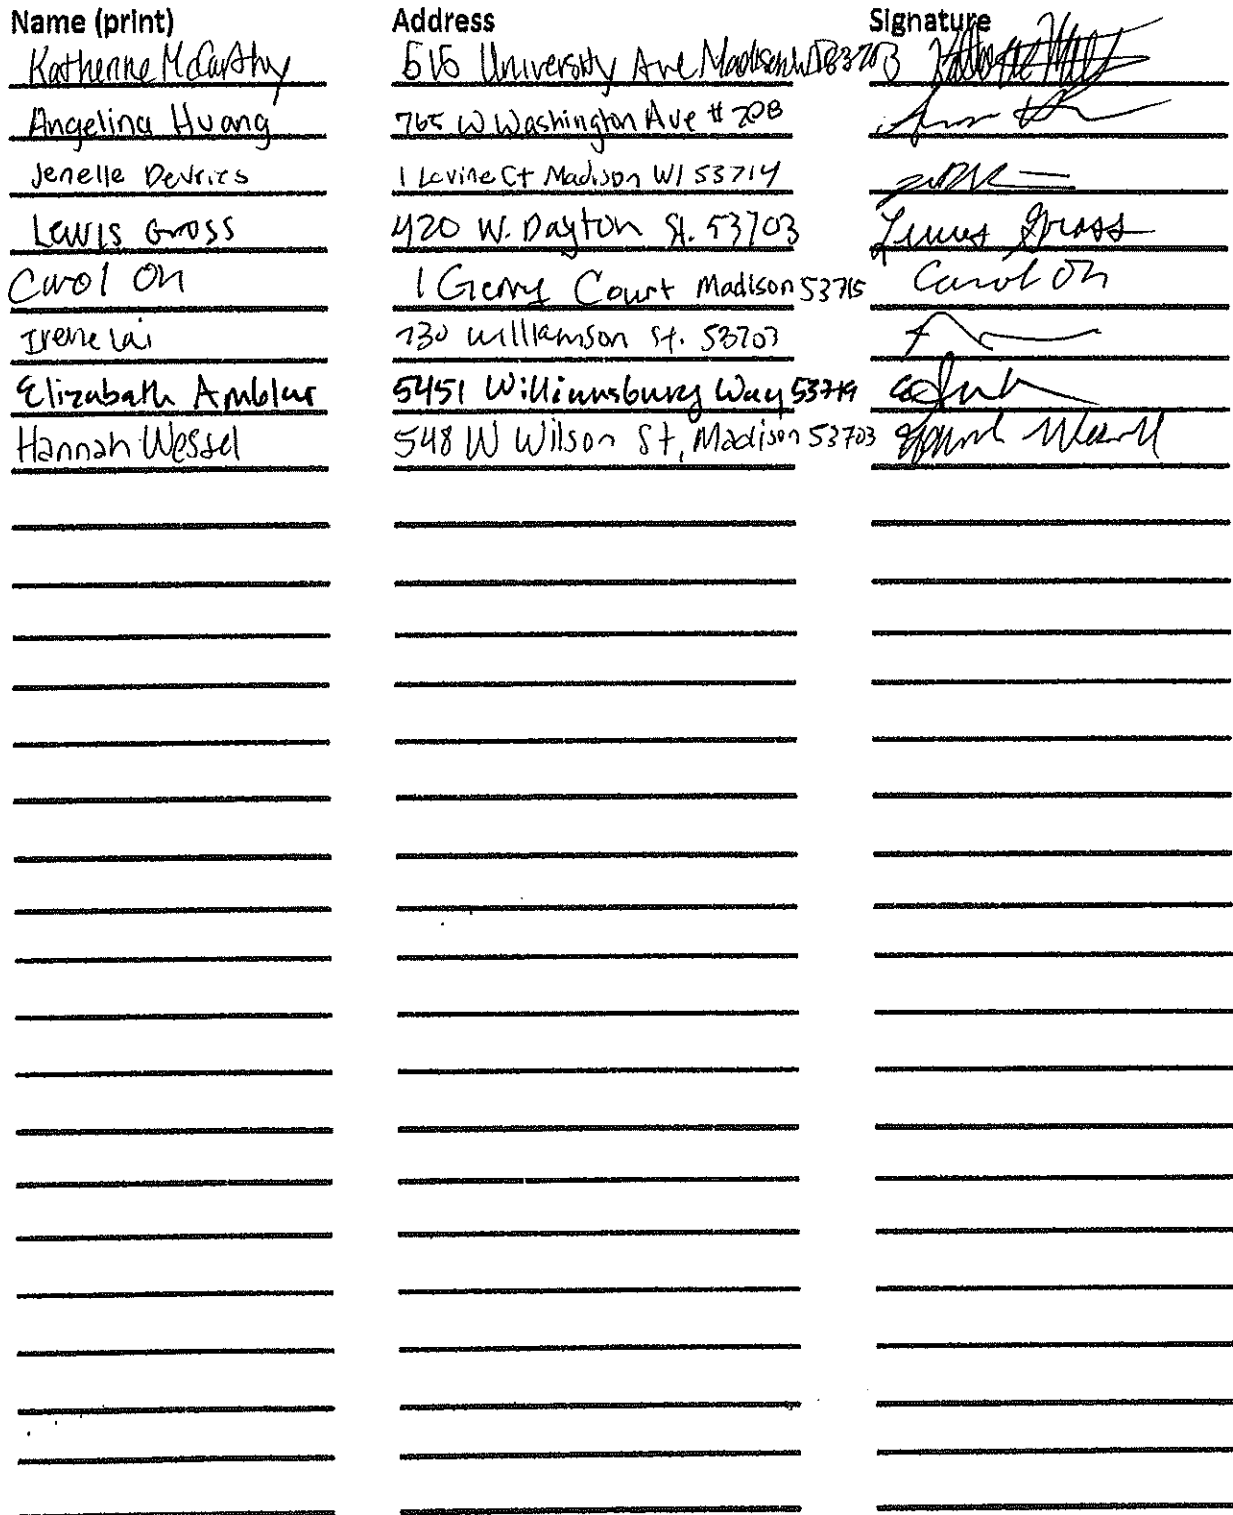 Name (print) Address Signature
Katherine McCarthy 515 University Ave Madison WI 53703
Angelina Huang 765 W Washington Ave # 208
Jenelle Devries 1 Levine Ct Madison WI 53714
Lewis Gross 420 W. Dayton St. 53703 Lewis Gross
Carol Oh 1 Court Madison 53715 Carol Oh
Irene Lai 730 Williamson St. 53703
Elizabeth Ambler 5451 Williamsburg Way 53719
Hannah Wessel 548 W Wilson St, Madison 53703 Hannah Wessel